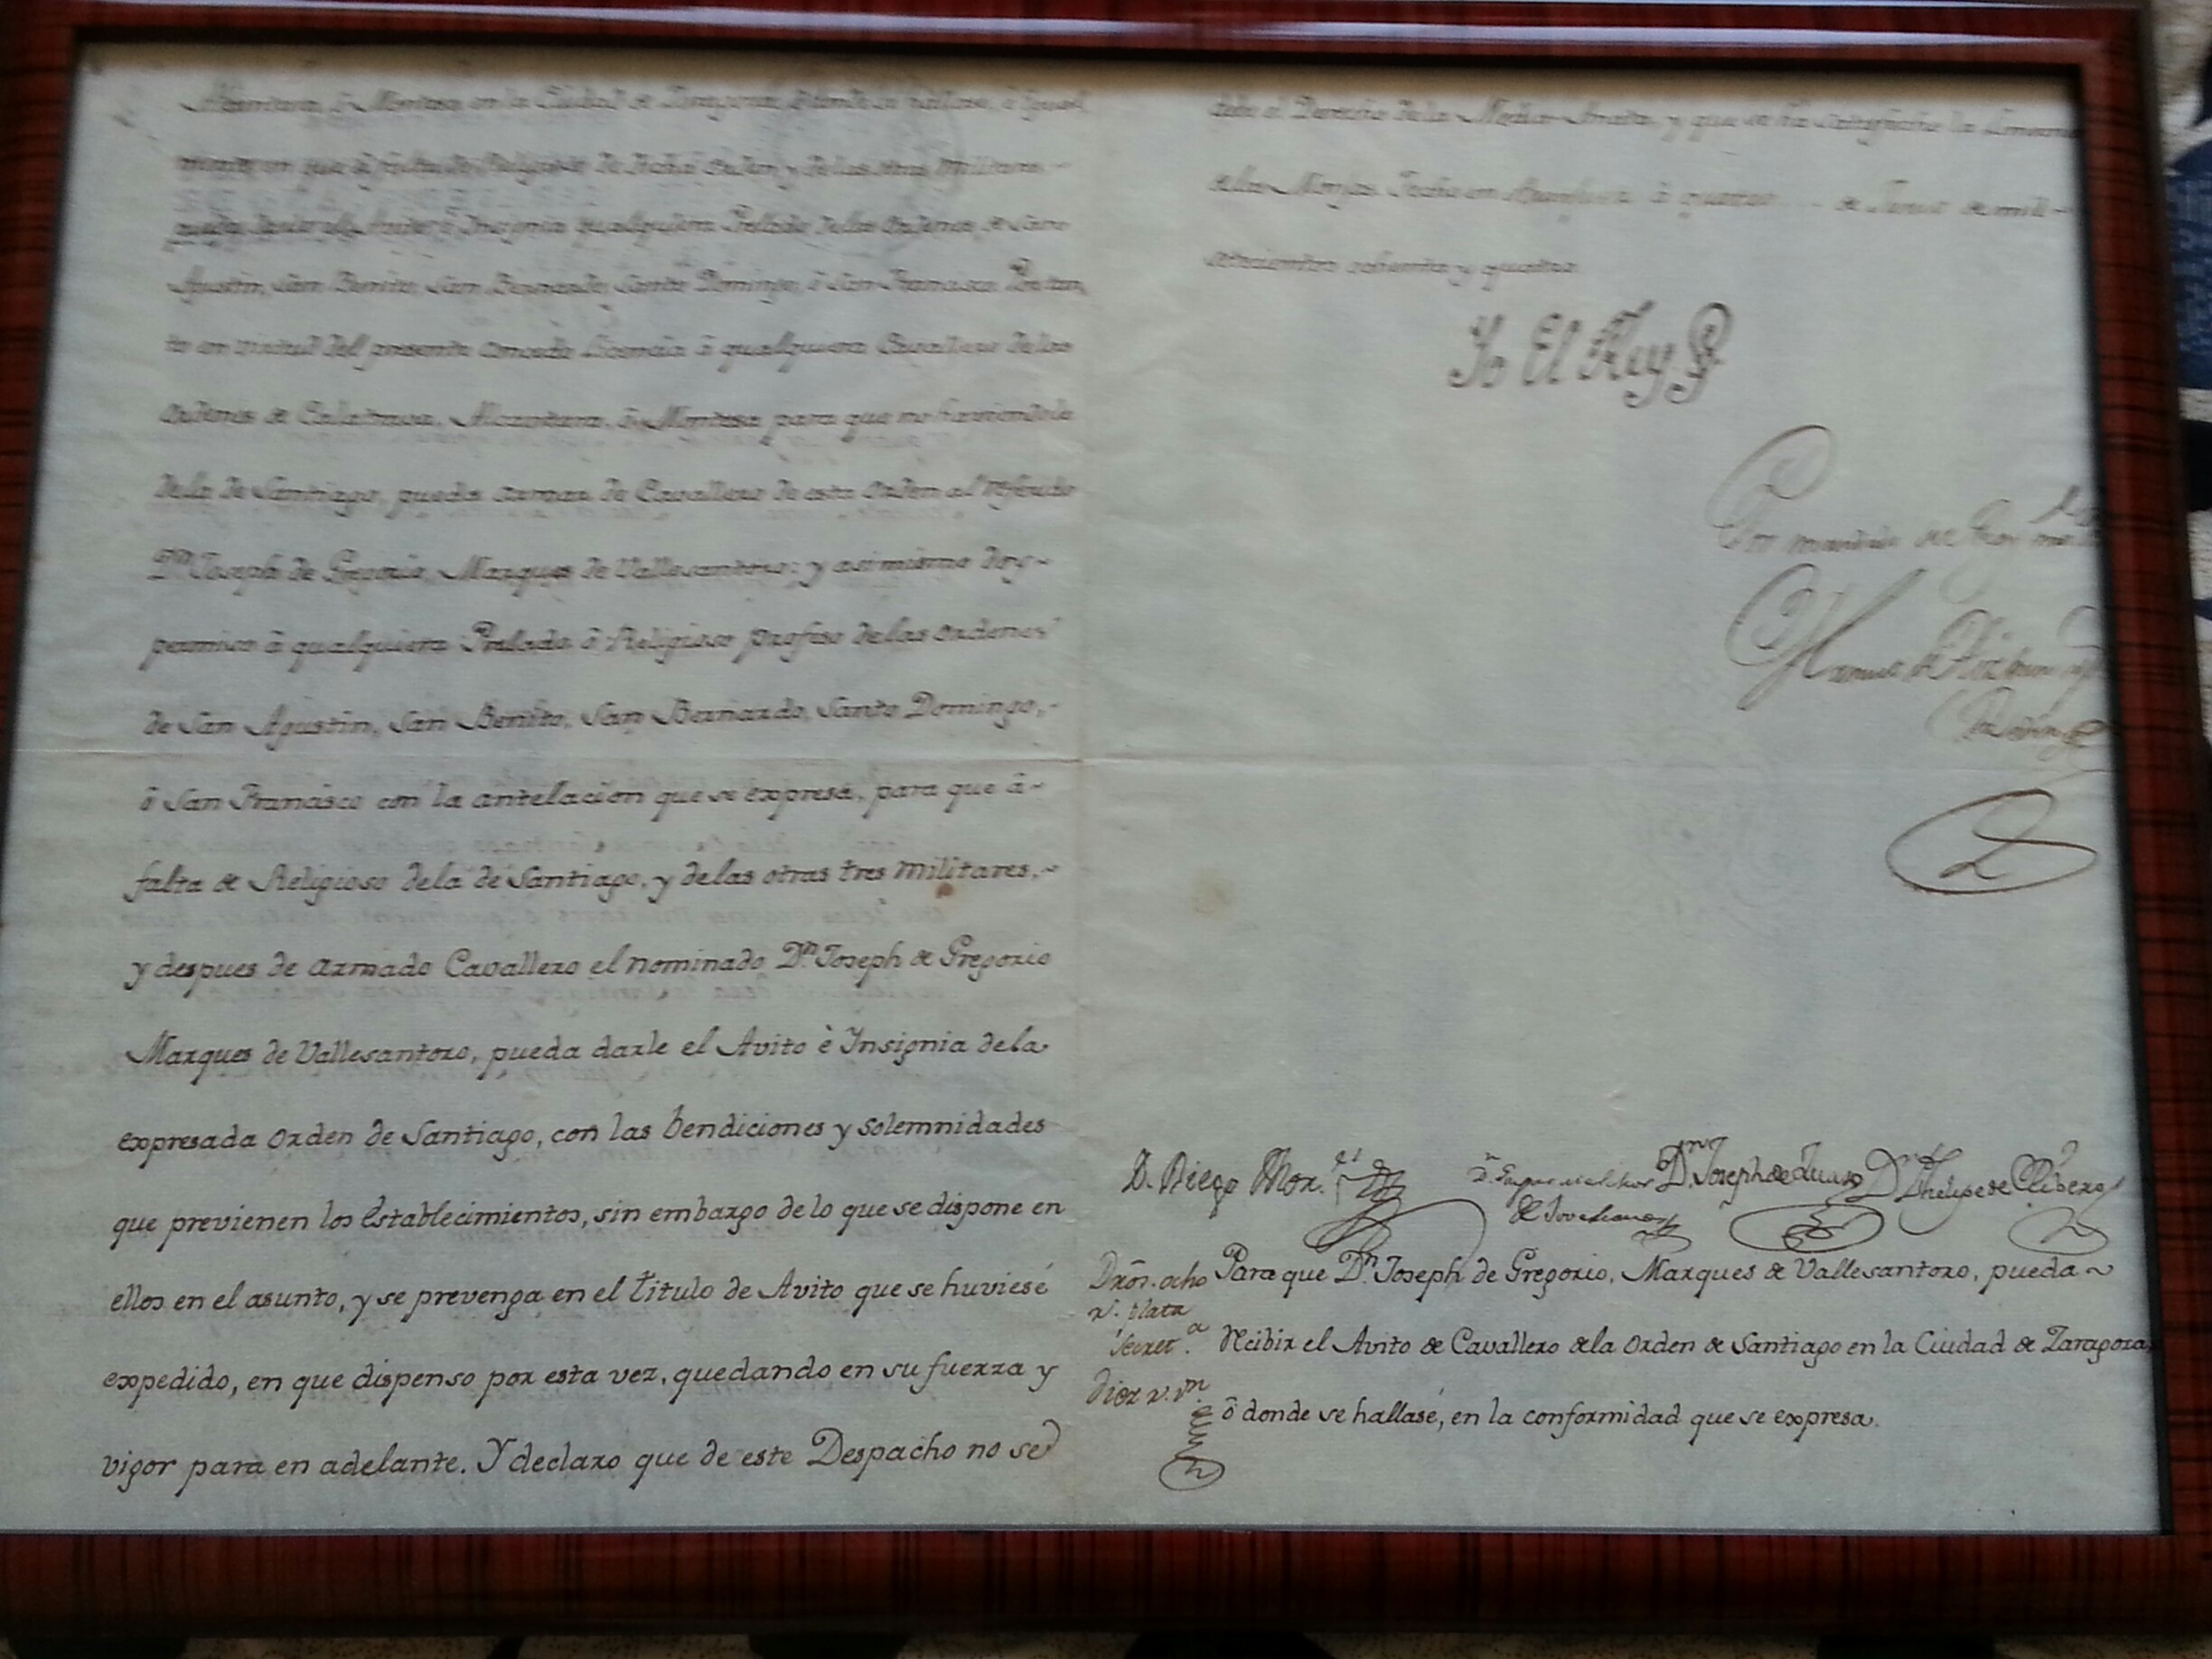 Alcantara, ò Montesa en la Ciudad de Zaragoza, ò donde se hallase, è igual
mente en que à falta de Religioso de dicha Orden, y de las otras Militares
pueda darle el Avito è Insignia qualquiera Prelado de las Ordenes de San
Agustin, San Benito, San Bernardo, Santo Domingo, ò San Francisco. Por tan
to en virtud del presente concedo Licencia à qualquiera Cavallero de las
Ordenes de Calatrava, Alcantara, ò Montesa para que no haviendole
dela de Santiago, pueda armar de Cavallero de esta Orden al referido
Dn. Joseph de Gregorio, Marques de Vallesantoro: y asimismo doy
permiso à qualquiera Prelado ò Religioso profeso delas Ordenes
de San Agustin, San Benito, San Bernardo, Santo Domingo,
ò San Francisco con la antelacion que se expresa, para que à
falta de Religioso dela de Santiago, y delas otras tres Militares,
y despues de armado Cavallero el nominado Dn. Joseph de Gregorio
Marques de Vallesantoro, pueda darle el Avito è Insignia dela
expresada Orden de Santiago, con las bendiciones y solemnidades
que previenen los Establecimientos, sin embargo de lo que se dispone en
ellos en el asunto, y se prevenga en el titulo de Avito que se huviese
expedido, en que dispenso por esta vez, quedando en su fuerza y
vigor para en adelante. Y declaro que de este Despacho no se
debe el Derecho de la Media-Anata, y que se ha satisfecho la
delas Monjas. Fecho en Aranjuez à quatro de Junio de mil
setecientos ochenta y quatro.
Yo El Rey
Por mandado del Rey
Manuel de
D. Diego
Dn. Gaspar Melchor
de Jovellanos
Dn. Joseph de
Dn. Phelipe de Ribero
Dros. ocho
r. plata
Secret.a
diez r. vn.
Para que Dn. Joseph de Gregorio, Marques de Vallesantoro, pueda
recibir el Avito de Cavallero dela Orden de Santiago en la Ciudad de Zaragoza,
ò donde se hallase, en la conformidad que se expresa.